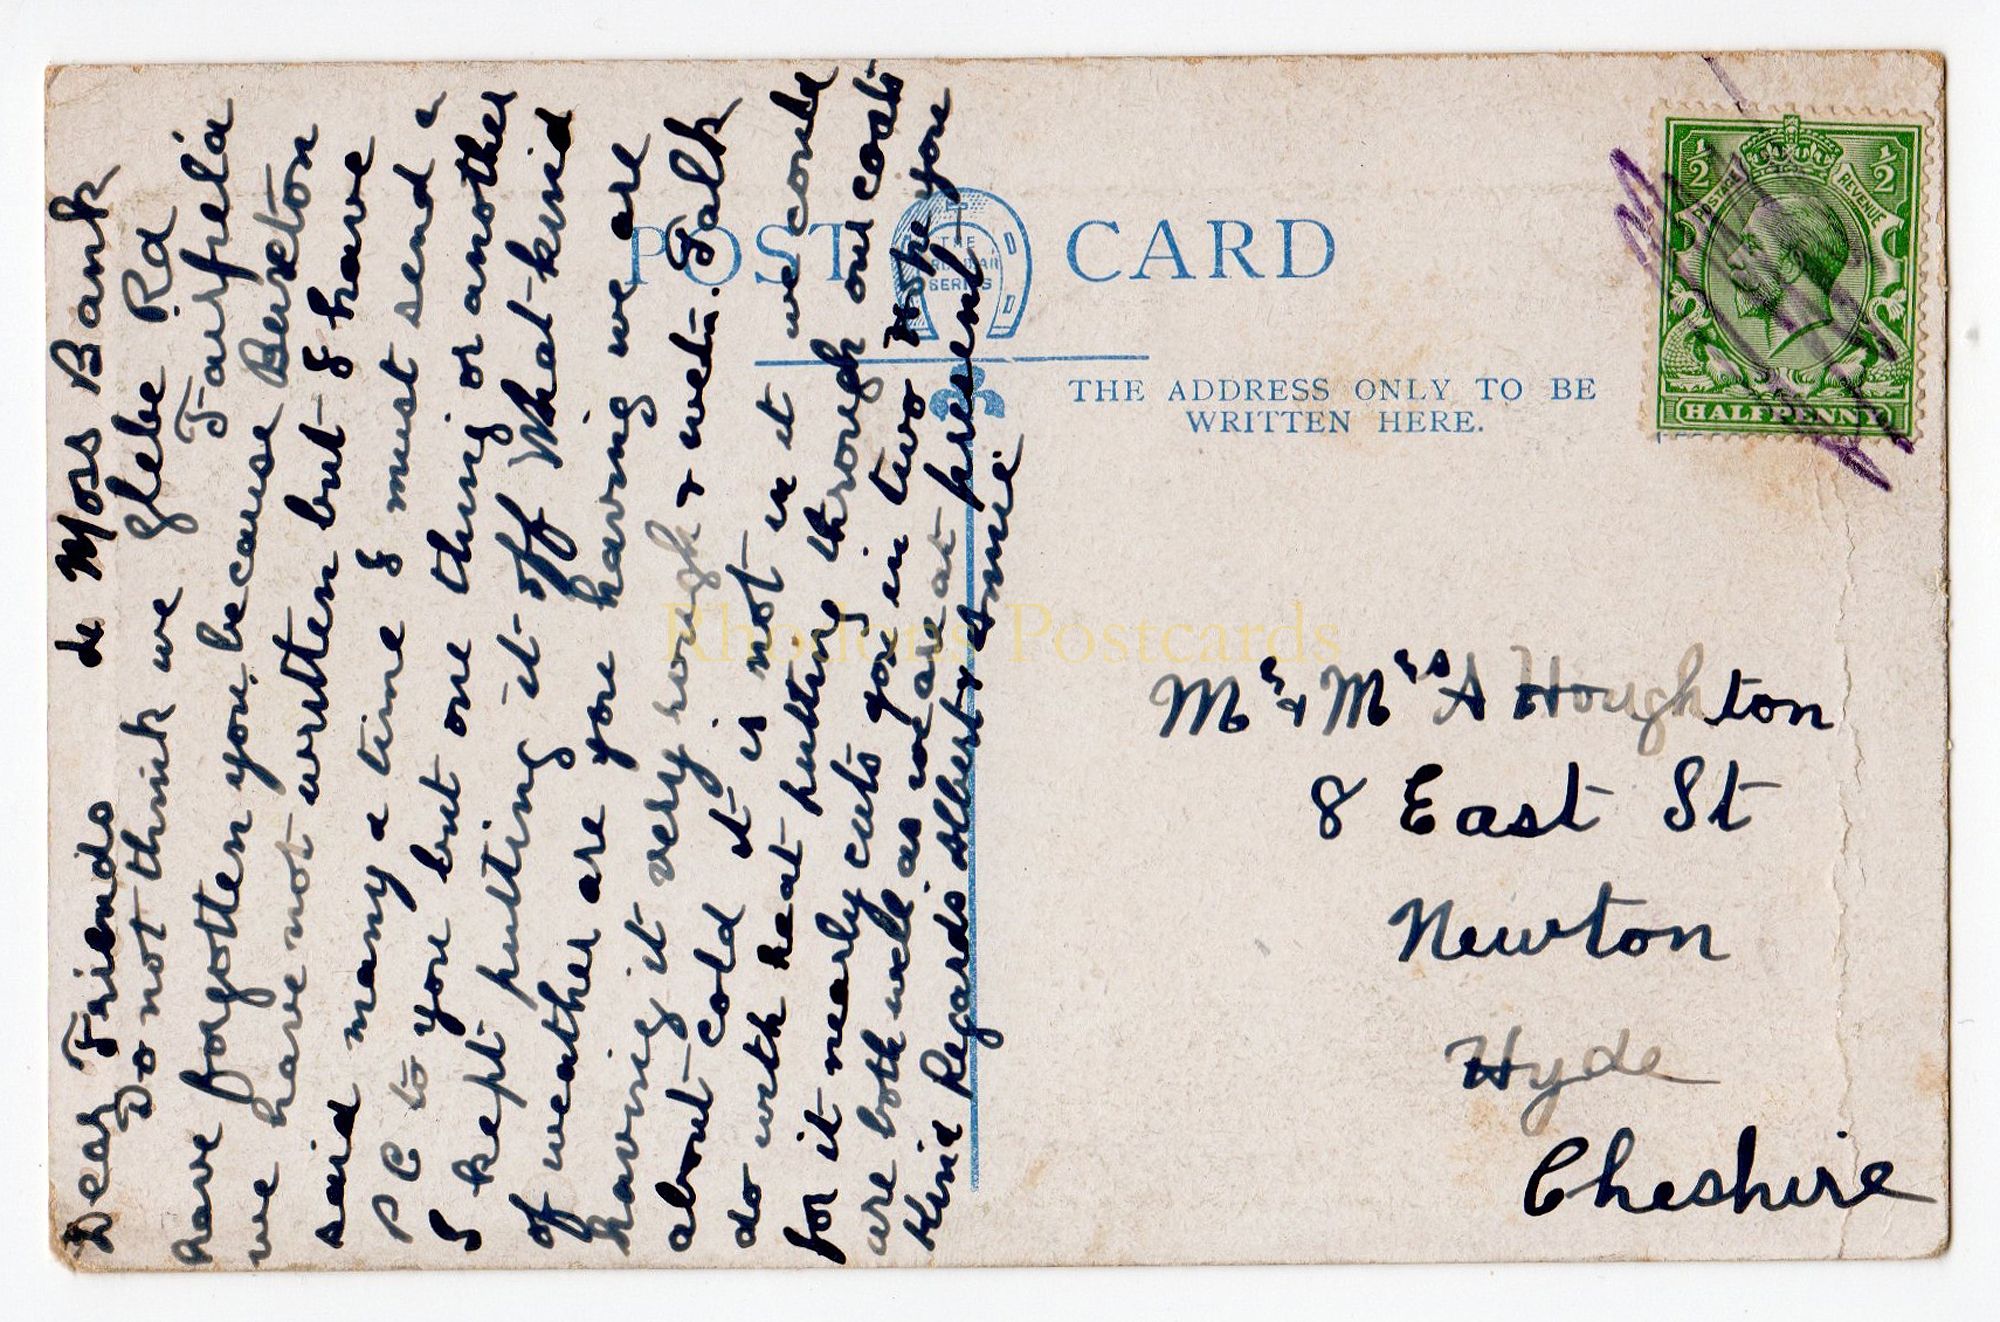 POST CARD
THE
SERIES
THE ADDRESS ONLY TO BE
WRITTEN HERE.
½ ½
POSTAGE REVENUE
HALFPENNY
Moss Bank
Glebe Rd
Fairfield
Buxton
Dear Friends
Do not think we
have forgotten you because
we have not written but I have
said many a time I must send a
P C to you but one thing or another
I kept putting it off What kind
of weather are you having we are
having it very rough & wet. Talk
about cold it is not in it we could
do with heat putting through our coats
for it nearly cuts you in two hope you
are both well as we are at present
Kind Regards Albert & Annie
Mr & Mrs A Houghton
8 East St
Newton
Hyde
Cheshire
Rhodons Postcards